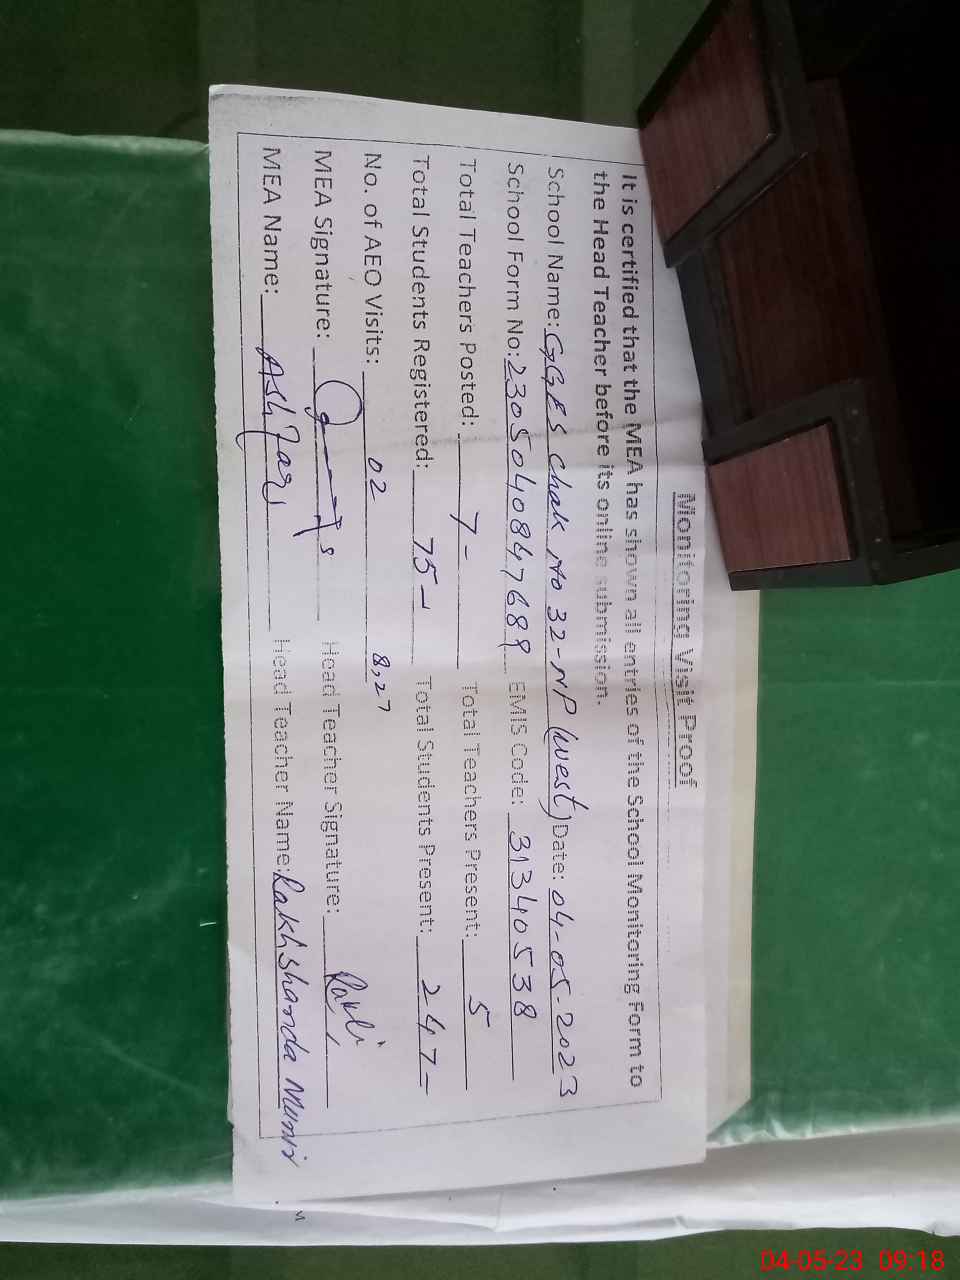 Monitoring Visit Proof
It is certified that the MEA has shown all entries of the School Monitoring Form to
the Head Teacher before its online submission.
School Name: GGES Chak No 32-NP (West) Date: 04-05-2023
School Form No: 230504084768 EMIS Code: 31340538
Total Teachers Posted: 7- Total Teachers Present: 5
Total Students Registered: 75- Total Students Present: 247-
No. of AEO Visits: 02 8,27
MEA Signature: Head Teacher Signature:
MEA Name: Ashfaq Head Teacher Name: Rakhshanda Munir
04-05-23 09:18